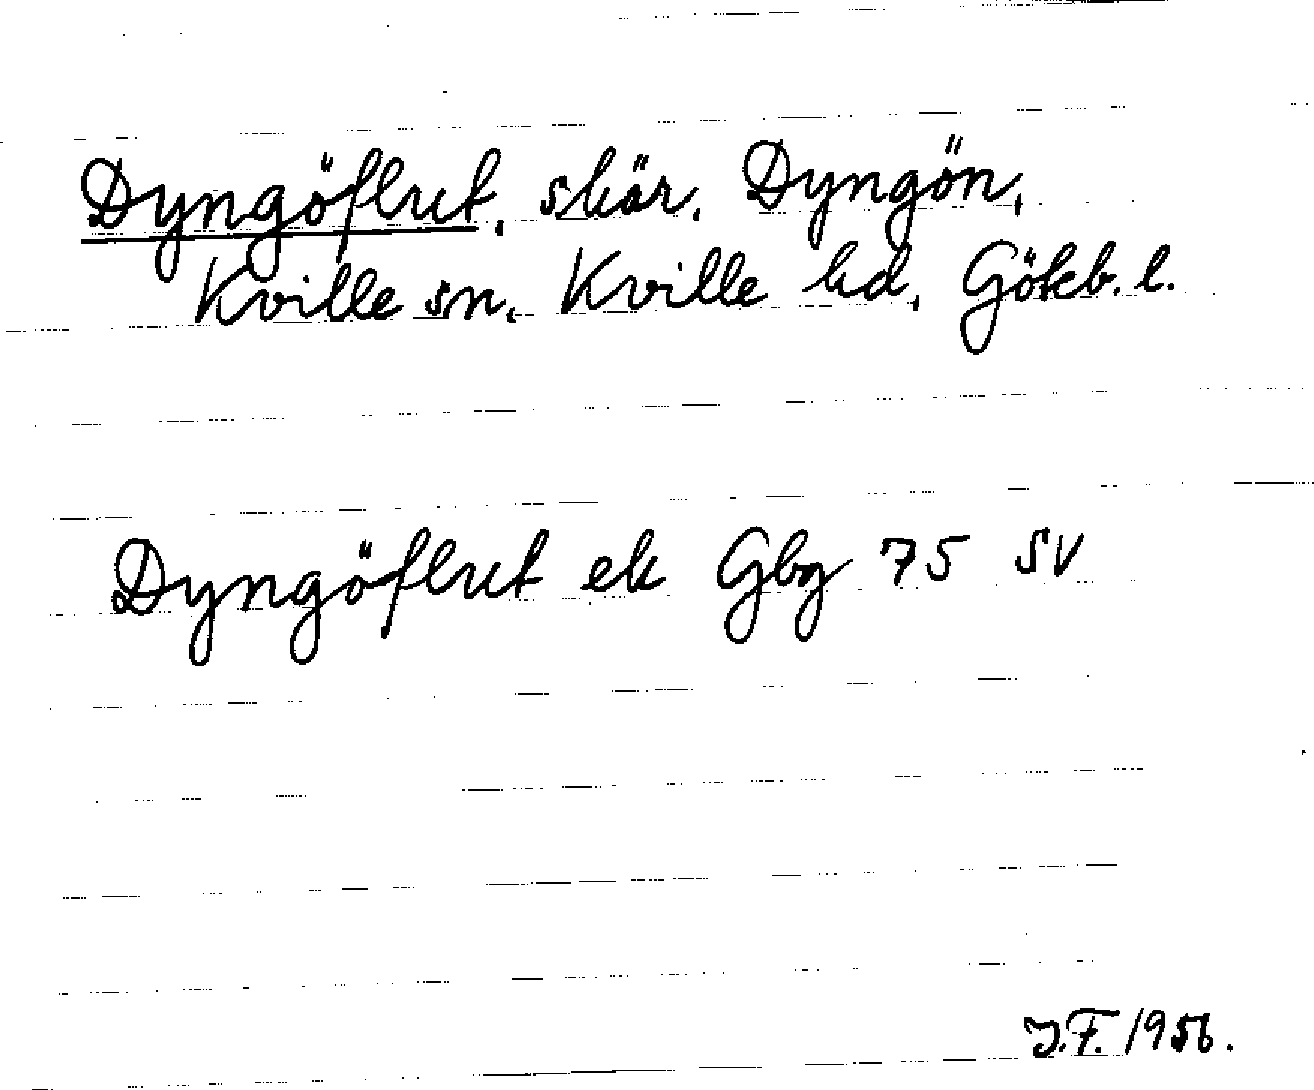 Dyngöflut, skär, Dyngön,
Kville sn, Kville hd, Göteb. l.
Dyngöflut ek Gbg 75 SV
J.F. 1956.